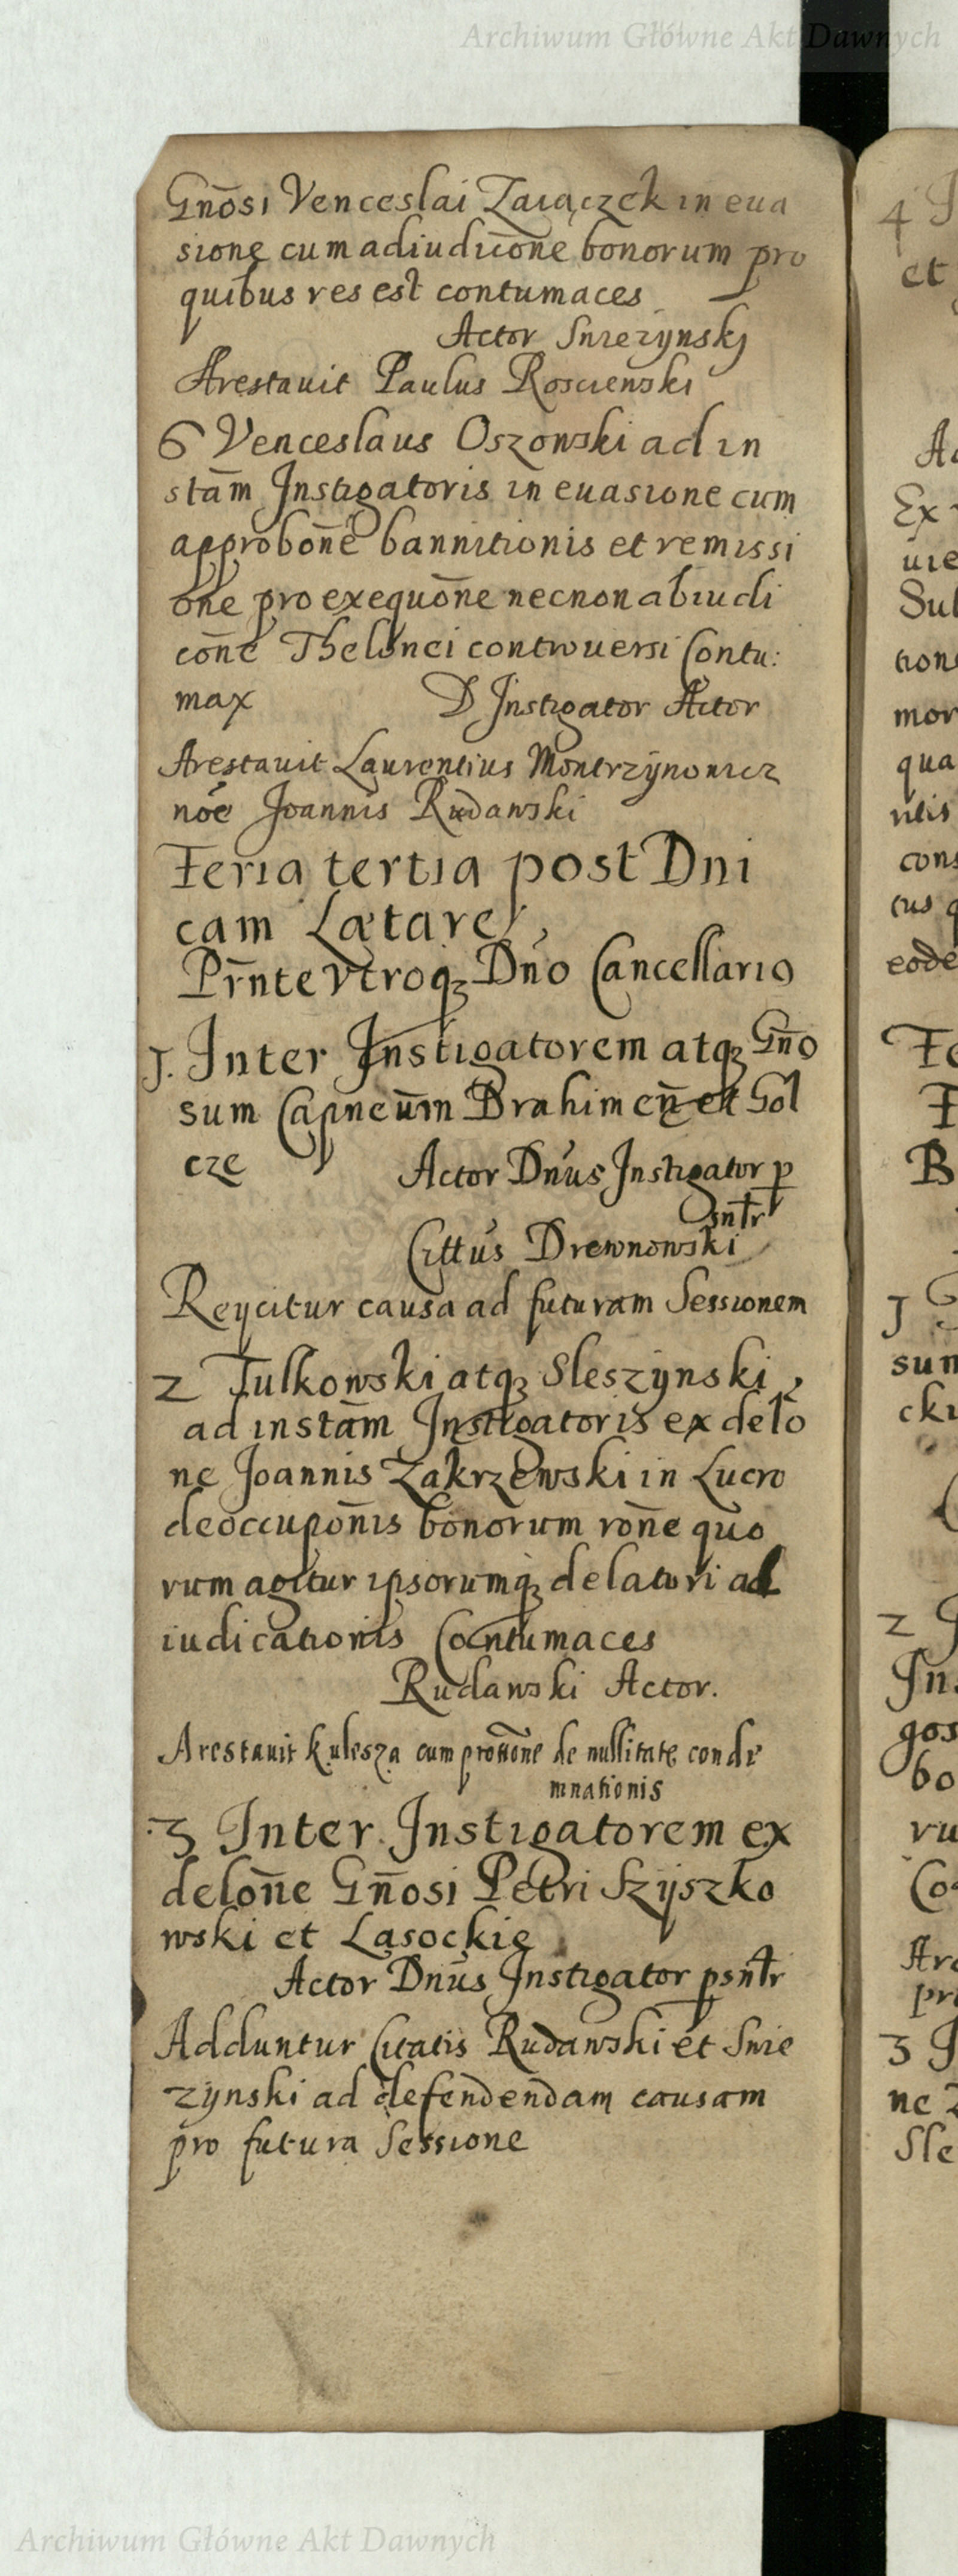 Archiwum Główne Akt Dawnych
Gnõsi Venceslai Zaiączek in eua
sione cum adiudicõne bonorum pro
quibus res est contumaces
Actor Snieżynskj
Arestauit Paulus Roscienski
6 Venceslaus Oszowski ad in
stãm Instigatoris in euasione cum
approbone̅ bannitionis et remissi
one pro exequõne necnon abiudi
cõne Thelonei controuersi Contu:
max D Instigator Actor
Arestauit Laurentius
nõe Joannis Rudawski
Feria tertia post Dni
cam Lætare
Prn̄te vtroqꝫ Dño Cancellario
1. Inter Instigatorem atqꝫ Gño
sum Capneum Brahim et Gol
cze Actor Dnus Instigator p
sntr
Cittus Drewnowski
Reycitur causa ad futuram Sessionem
2 Tulkowski atqꝫ Sleszynski
ad instãm Instigatoris ex delõ
ne Joannis Zakrzewski in Lucro
deoccupõnis bonorum rõne quo
rum agitur ipsorumqꝫ delatori ad
iudicationis Contumaces
Rudawski Actor.
Arestauit Kulesza cum de nullitate conde
mnationis
3 Inter Instigatorem ex
delõne Gnõsi Petri Szyszko
wski et Lasockie
Actor Dnus Instigator psntr
Adduntur Citatis Rudawski et Snie
zynski ad defendendam causam
pro futura Sessione
4
et
Ac
Ex
uie
Sub
tion
mor
qua
cons
eode
Fe
B
1
sum
cki
2
Ins
gos
bo
ru
Co
Are
pro
3 I
ne Z
Sle
Archiwum Główne Akt Dawnych